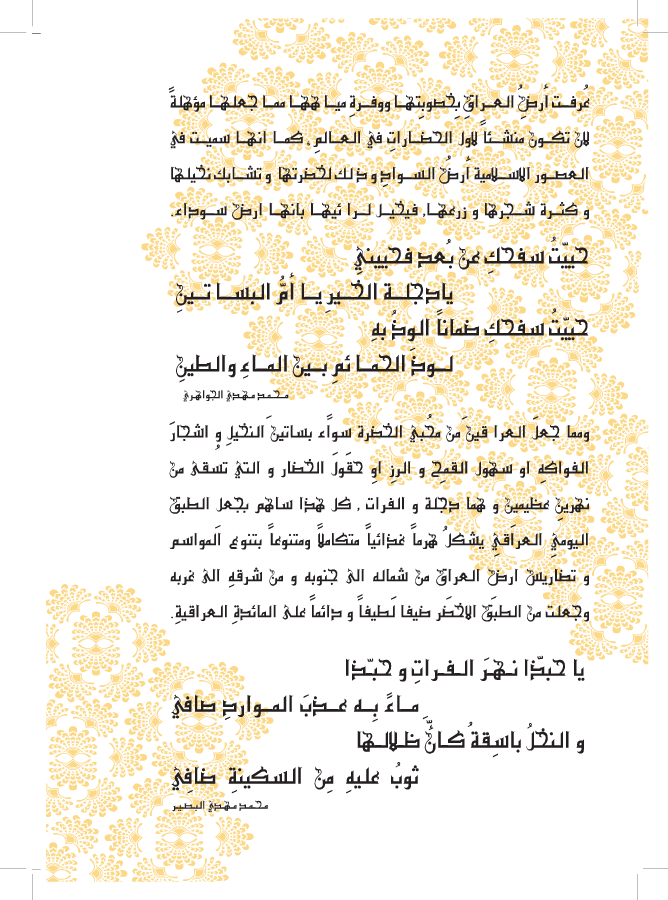 عُرفت أرضُ العراقِ بِخصوبِتها ووفرةِ ميا هها مما جعلها مؤهلةً
لان تكون منشئاً لاول الحضاراتِ في العالمِ , كما انها سميت في
العصور الاسلامية أرضُ السوادِ و ذلك لخضرتها و تشابك نخيلها
و كثرة شجرها و زرعها, فيخيل لرا ئيها بانها ارض سوداء.
حييّتُ سفحكِ عن بُعدٍ فحييني
يادجلة الخيرِ يا أمَّ البسا تينِ
حييّتُ سفحكِ ضماناً الوذُ بهِ
لوذَ الحما ئمِ بين الماءِ والطينِ
محمد مهدي الجواهري
ومما جعلَ العرا قينَ من محُبي الخضرة سواًء بساتينَ النخيلِ و اشجارَ
الفواكهِ او سهول القمحِ و الرزِ اوِ حقَولَ الخضار و التي تسقى من
نهرينِ عظيمينِ و هما دجلة و الفرات , كل هذا ساهم بجعل الطبق
اليوميِ العراَقيِ يشكلُ هرماً غذائياً متكاملاً ومتنوعاً بتنوع اَلمواسم
و تضاريس ارضِ العراق من شماله الى جنوبه و من شرقهِ الى غربه
وجعلت من الطبَق الاخضَر ضيفا لَطيفاً و دائماً على المائدةِ العراقيةِ.
يا حبّذا نهرَ الفراتِ و حبّذا
ماءً بِه عذبَ المواردِ صافي
و النخلُ باسِقةُ كانَّ ظلالها
ثوبُ عليهِ مِن السكينةِ ضافِي
محمد مهدي البصير